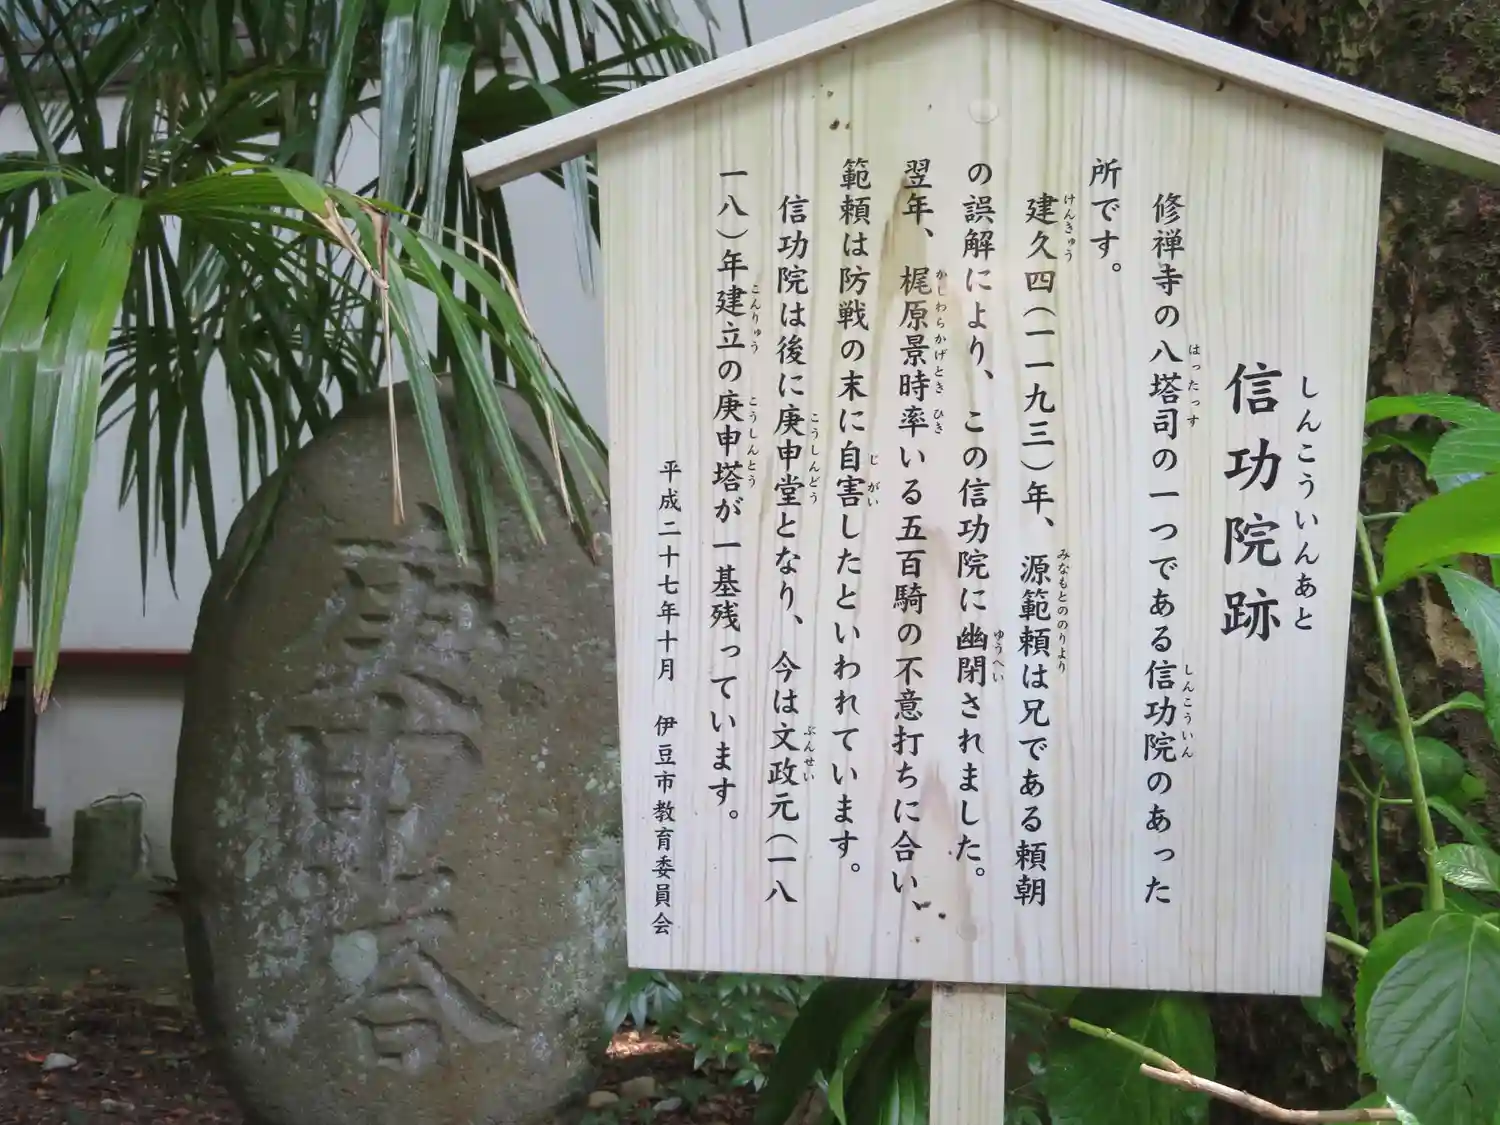 しんこういんあと
信功院跡
はったっす しんこういん
修禅寺の八塔司の一つである信功院のあった
所です。
けんきゅう みなもとののりより
建久四(一一九三)年、源範頼は兄である頼朝
の誤解により、この信功院に幽閉されました。
ゆうへい
かじわらかげとき ひき
翌年、梶原景時率いる五百騎の不意打ちに合い、
じがい
範頼は防戦の末に自害したといわれています。
こうしんどう ぶんせい
信功院は後に庚申堂となり、今は文政元(一八
こんりゅう こうしんとう
一八)年建立の庚申塔が一基残っています。
平成二十七年十月 伊豆市教育委員会
庚申塔